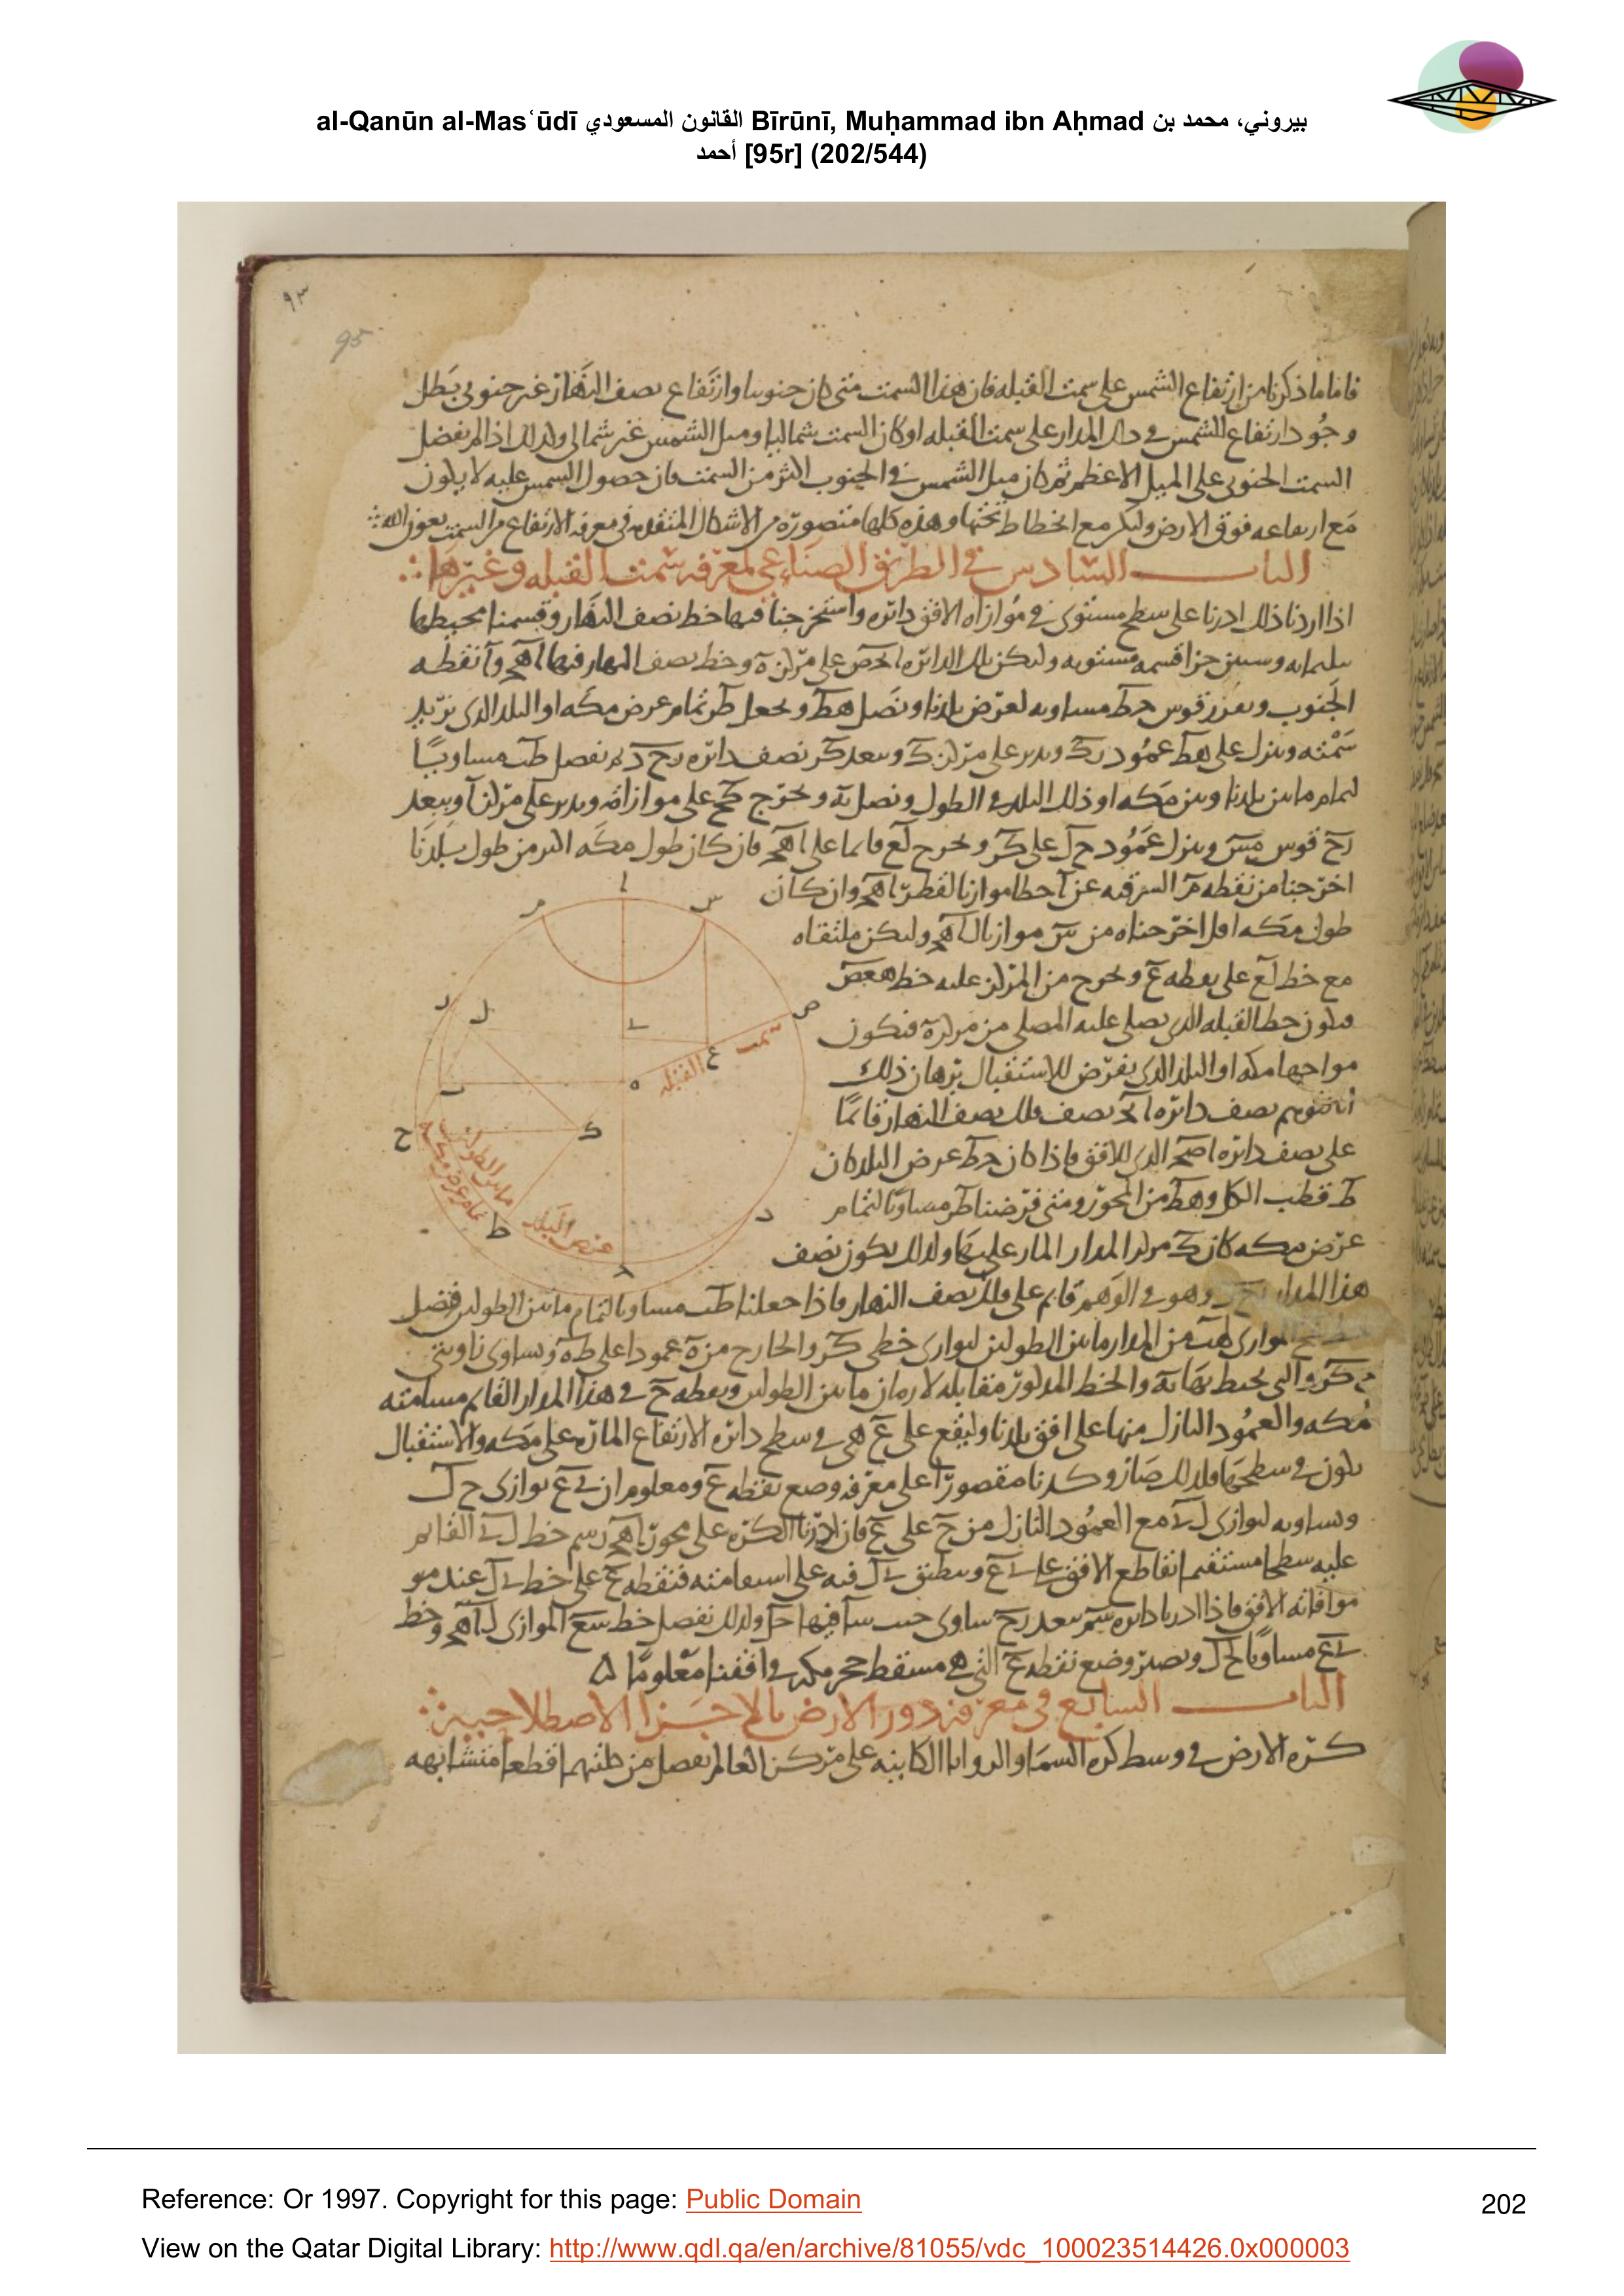 al-Qanūn al-Masʿūdī القانون المسعودي Bīrūnī, Muḥammad ibn Aḥmad بيروني، محمد بن
أحمد [95r] (202/544)
٩٣
95
فاما ما ذكرنا من ارتفاع الشمس على سمت القبله فان هذا السمت متى كان جنوبيا وارتفاع نصف النهار غير جنوبي بطل
وجود ارتفاع الشمس في ذلك المدار على سمت القبله او كان السمت شماليا وميل الشمس غير شمالي ولذلك اذا لم يفضل
السمت الجنوبي على الميل الاعظم ثم كان ميل الشمس في الجنوب اكثر من السمت فان حصول الشمس عليه لا يكون
مع ارتفاعه فوق الارض ولكن مع انحطاط تحتها وهذه كلها متصوره من الاشكال المتقدمه في معرفه الارتفاع من السمت بعون الله
الباب السادس في الطريق الصناعي لمعرفه سمت القبله وغيرها
اذا اردنا ذلك ادرنا على سطح مستوى في موازاه الافق دائره واستخرجنا فيها خط نصف النهار وقسمنا محيطها
بثلثمايه وستين جزا قسمه مستويه ولتكن تلك الدائره احص على مركز ه وخط نصف النهار فيها اهح وا نقطه
الجنوب ونفرز قوس حط مساويه لعرض بلدنا ونصل هط ونجعل طر تمام عرض مكه او البلد الذي نريد
سمته وننزل على هط عمود رك وندير على مركز ك وببعد كر نصف دائره رح د ثم نفصل طب مساويا
لتمام ما بين بلدنا وبين مكه او ذلك البلد في الطول ونصل به ونخرج كح على موازاته وندير على مركز ا وببعد
رح قوس مس وننزل عمود ح ل على كر ونخرج لع قائما على اهح فان كان طول مكه اكثر من طول بلدنا
اخرجنا من نقطه م الشرقيه عن ا خطا موازيا لقطر اهح وان كان
طول مكه اقل اخرجناه من س موازيا لاهح وليكن ملتقاه
مع خط لع على نقطه ع ونخرج من المركز عليه خط هعص
فيكون خط القبله الذي يصلي عليه المصلي من مركز ه فيكون
مواجها مكه او البلد الذي يفرض للاستقبال برهان ذلك
انا نتوهم نصف دائره اح نصف فلك نصف النهار قائما
على نصف دائره اصح الذي للافق فاذا كان حط عرض البلد كان
ط قطب الكل وهط من المحور ومتى فرضنا طر مساويا لتمام
عرض مكه كان ك مركز المدار المار عليها ولذلك يكون نصف
هذا المدار رح د وهو في الوهم قائم على فلك نصف النهار فاذا جعلنا طب مساويا لتمام ما بين الطولين فضل
من المدار ما بين الطولين لتوازى خطى كر والخارج من ه عمودا على طه وتساوى زاويتى
ونقطه ح في هذا المدار القائم مسامته
لمكه والعمود النازل منها على افق بلدنا وليقع على ع هي في سطح دائره الارتفاع الماره على مكه والاستقبال
يكون في سطحها ولذلك صار وكدنا مقصورا على معرفه وضع نقطه ع ومعلوم ان ى ع يوازى ح ل
ويساويه لتوازى لى مع العمود النازل من ح على ع فان ادرنا الكره على محور اهح رسم خط لى القائم
عليه سطحا مستقيما تقاطع الافق على ى ع
موافاته الافق فاذا ادرنا دائره سم ببعد رح ولذلك نفصل خط سع الموازى لاهح وخط
ى ع مساويا لحل ويصير وضع نقطه ع التي هي مسقط حجر مكه في افقنا معلوما ه
الباب السابع في معرفه دور الارض بالاجزا الاصطلاحيه
كره الارض في وسط كره السما والزوايا الكاينه على مركز العالم يفصل من كلتيهما قطعا متشابهه
ا
س
م
ص
ر
ل
ى
ع
سمت القبله
ه
ب
ح
ك
ما بين الطولين
تمام عرض مكه
ط
عرض البلد
د
ح
Reference: Or 1997. Copyright for this page: Public Domain
202
View on the Qatar Digital Library: http://www.qdl.qa/en/archive/81055/vdc_100023514426.0x000003